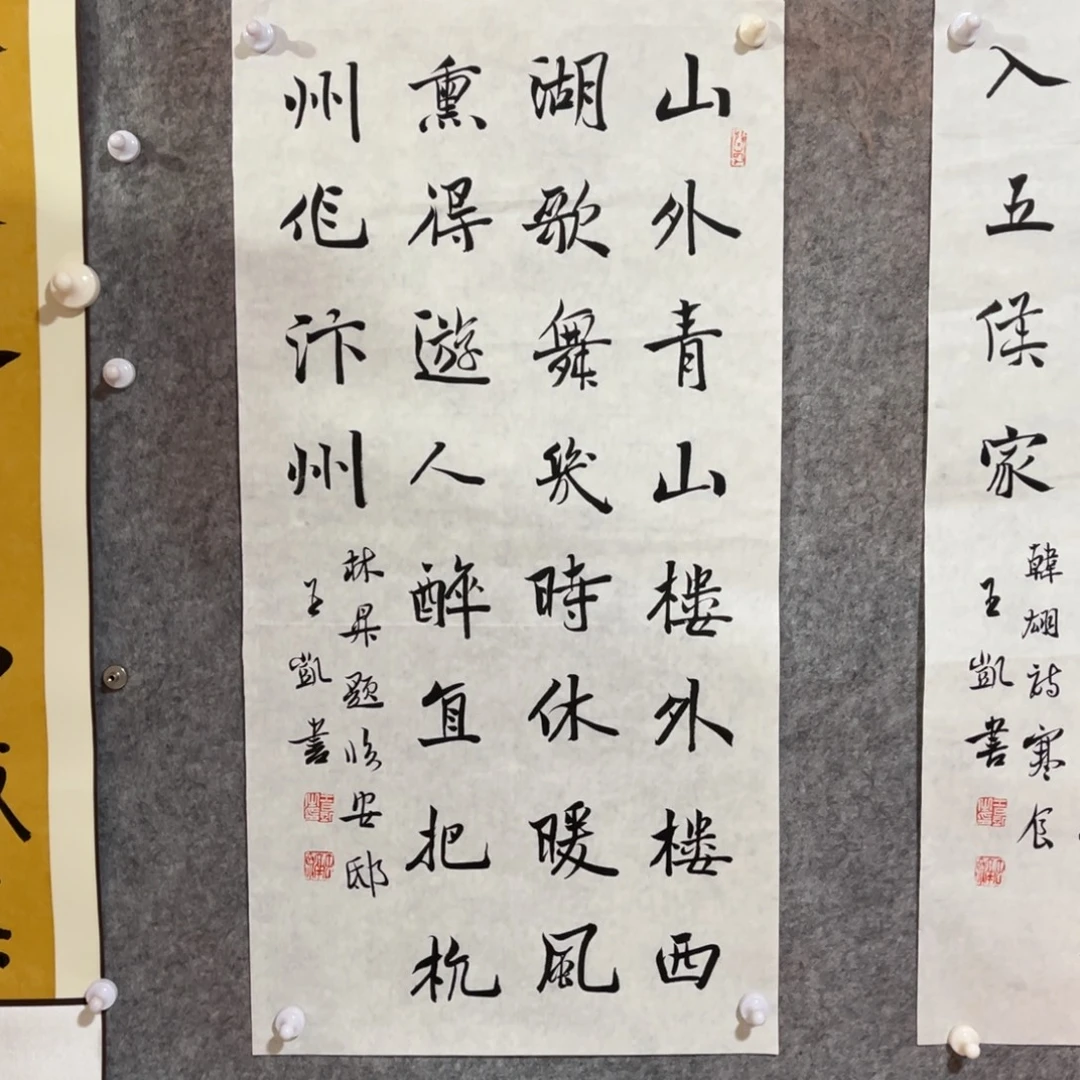 山外青山樓外樓西
湖歌舞幾時休暖風
熏得遊人醉直把杭
州作汴州
林昇題临安邸
王凱書
入五侯家
韓翃詩寒食
王凱書